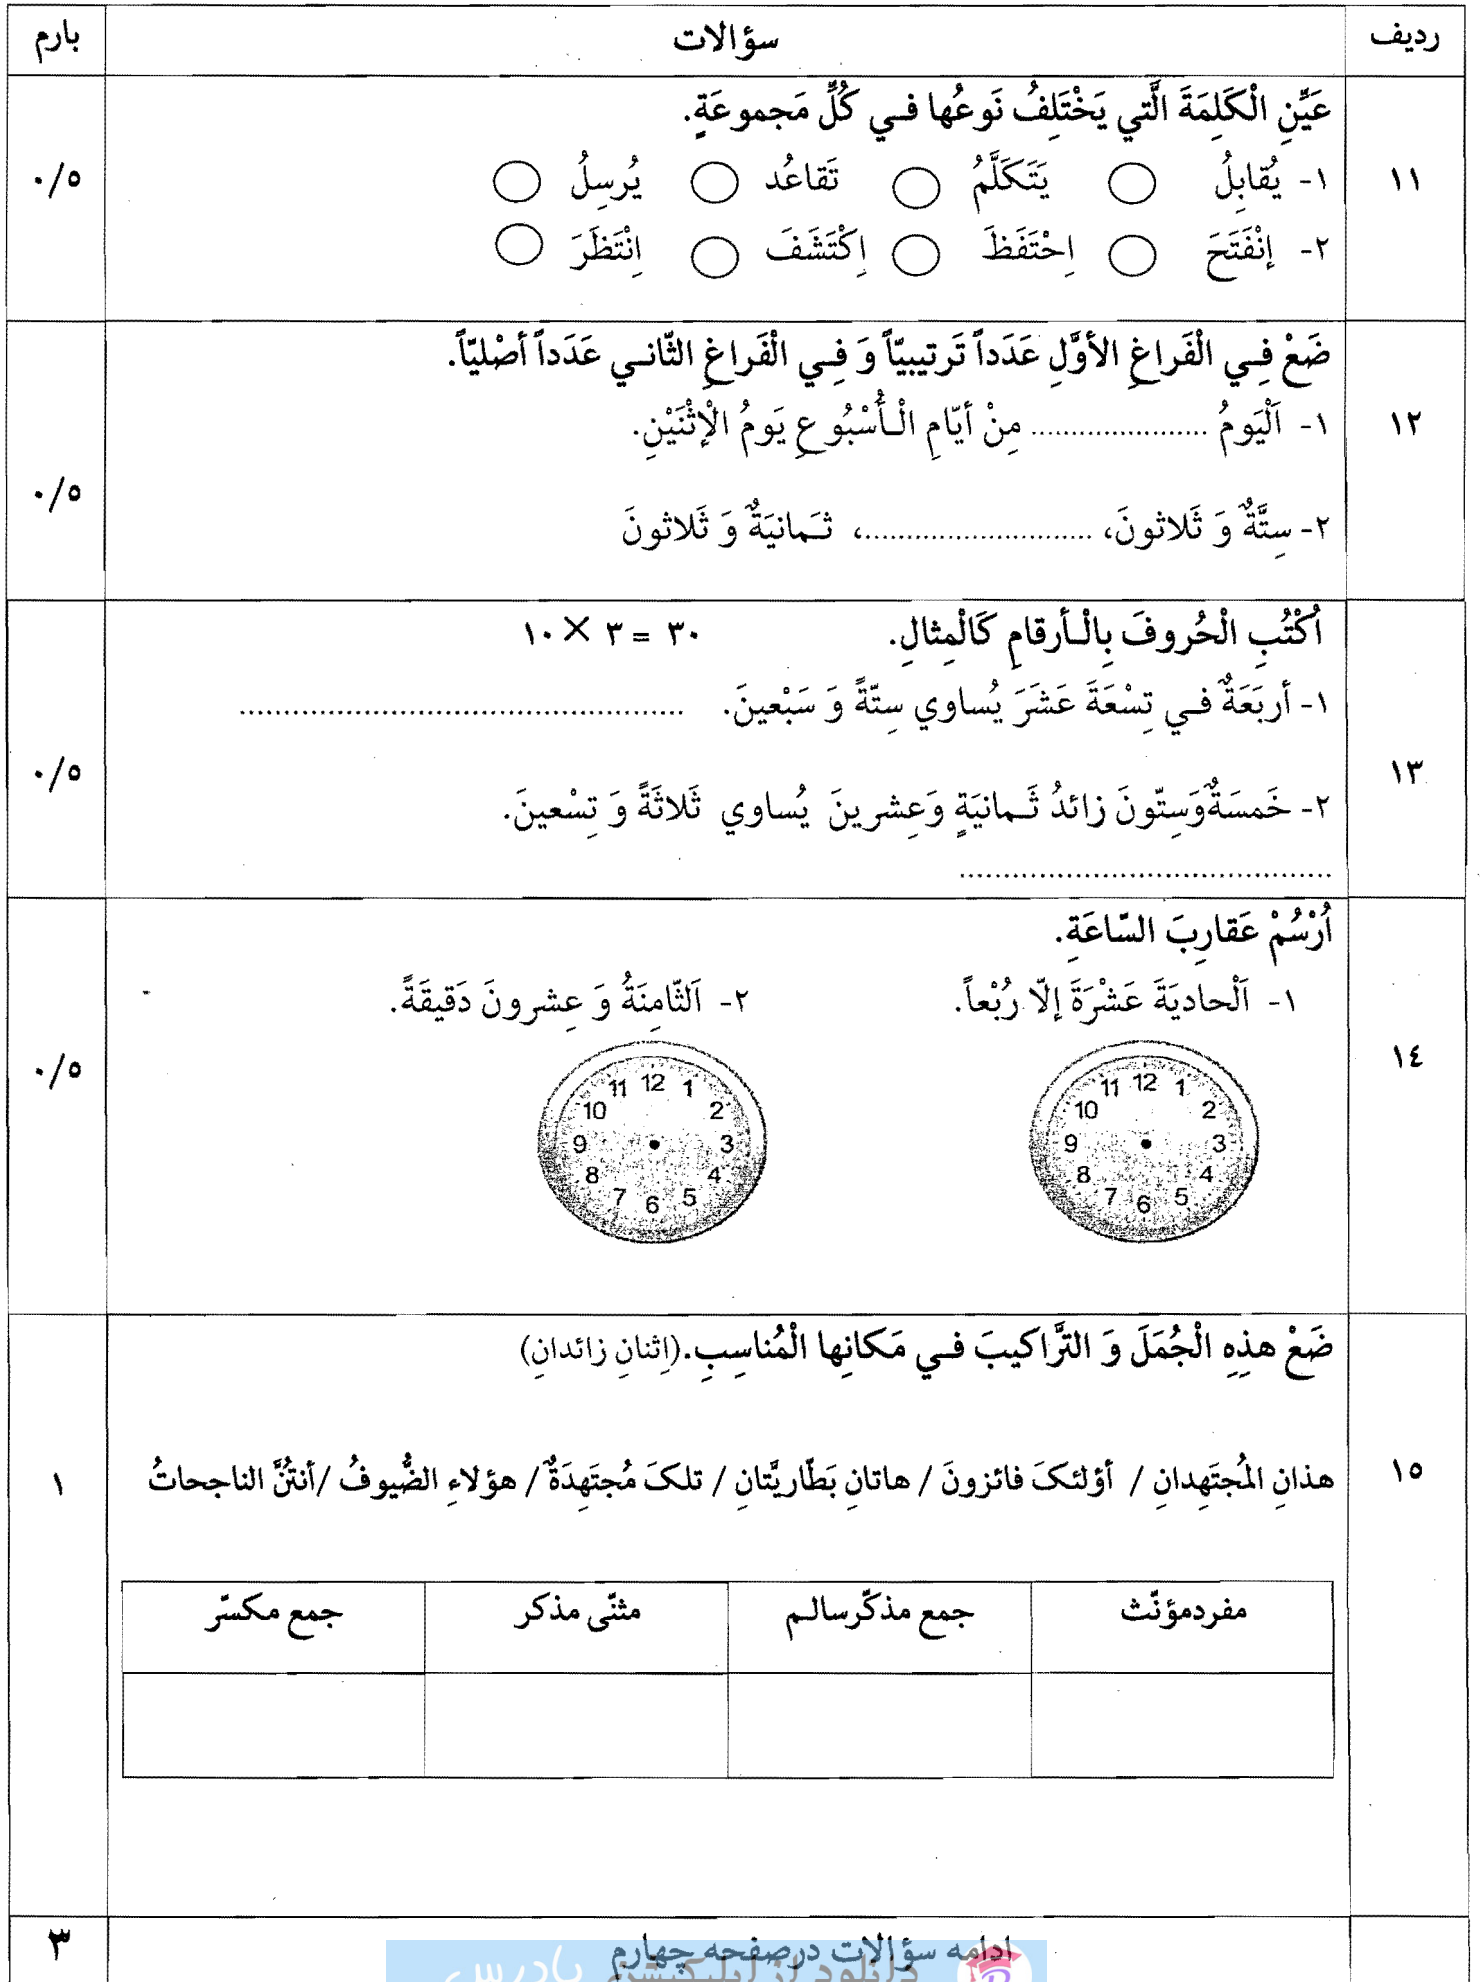 ردیف سؤالات بارم
عَيِّنِ الْكَلِمَةَ الَّتي يَخْتَلِفُ نَوعُها فـي كُلِّ مَجموعَةٍ.
١١ ١- يُقابِلُ ○ يَتَكَلَّمُ ○ تَقاعُد ○ يُرسِلُ ○ ٠/٥
٢- إنْفَتَحَ ○ اِحْتَفَظَ ○ اِكْتَشَفَ ○ اِنْتَظَرَ ○
ضَعْ فِـي الْفَراغِ الأوَّلِ عَدَداً تَرتيبيّاً وَ فِـي الْفَراغِ الثّانـي عَدَداً أصْليّاً.
١٢ ١- اَلْيَومُ ...................... مِنْ أيّامِ الْـأُسْبُوعِ يَومُ الْإثْنَيْنِ.
٠/٥
٢- سِتَّةٌ وَ ثَلاثونَ، ............................، ثـَمانيَةٌ وَ ثَلاثونَ
اُكْتُبِ الْحُروفَ بِالْـأرقامِ كَالْمِثالِ. ١٠ × ٣ = ٣٠
١- أربَعَةٌ فـي تِسْعَةَ عَشَرَ يُساوي سِتّةً وَ سَبْعينَ. ..................................................
١٣ ٠/٥
٢- خَمسَةٌوَسِتّونَ زائدُ ثَـمانيَةٍ وَعِشرينَ يُساوي ثَلاثَةً وَ تِسْعينَ.
..........................................
اُرْسُمْ عَقارِبَ السّاعَةِ.
١- اَلْحاديَةَ عَشْرَةَ إلّا رُبْعاً. ٢- اَلثّامِنَةُ وَ عِشرونَ دَقيقَةً.
١٤ ٠/٥
11 12 1 11 12 1
10 2 10 2
9 3 9 3
8 4 8 4
7 6 5 7 6 5
ضَعْ هذِهِ الْجُمَلَ وَ التَّراكيبَ فـي مَكانِها الْمُناسِبِ.(اِثنانِ زائدانِ)
١٥ هذانِ المُجتَهِدانِ / أؤلئکَ فائزونَ / هاتانِ بَطّاريَّتانِ / تلکَ مُجتَهِدَةٌ / هؤلاءِ الضُّيوفُ /أنتُنَّ الناجحاتُ ١
مفردمؤنّث جمع مذکّرسالـم مثنّی مذکر جمع مکسّر
ادامه سؤالات درصفحه چهارم ٣
دانلود از اپلیکیشن پادرس